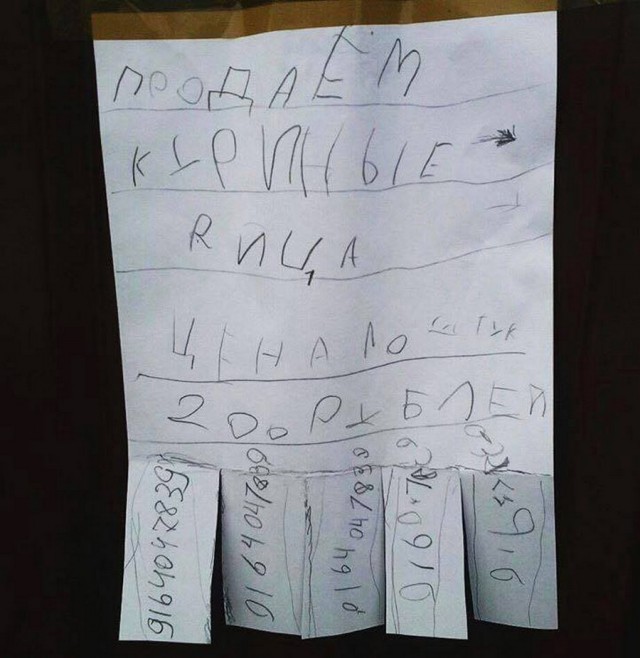 ПРОДАЁМ
КУРИНЫЕ →
RИЦА
ЦЕНА 10 ШТУК
200 РУБЛЕЙ
9164047839
9164047839
9164047839